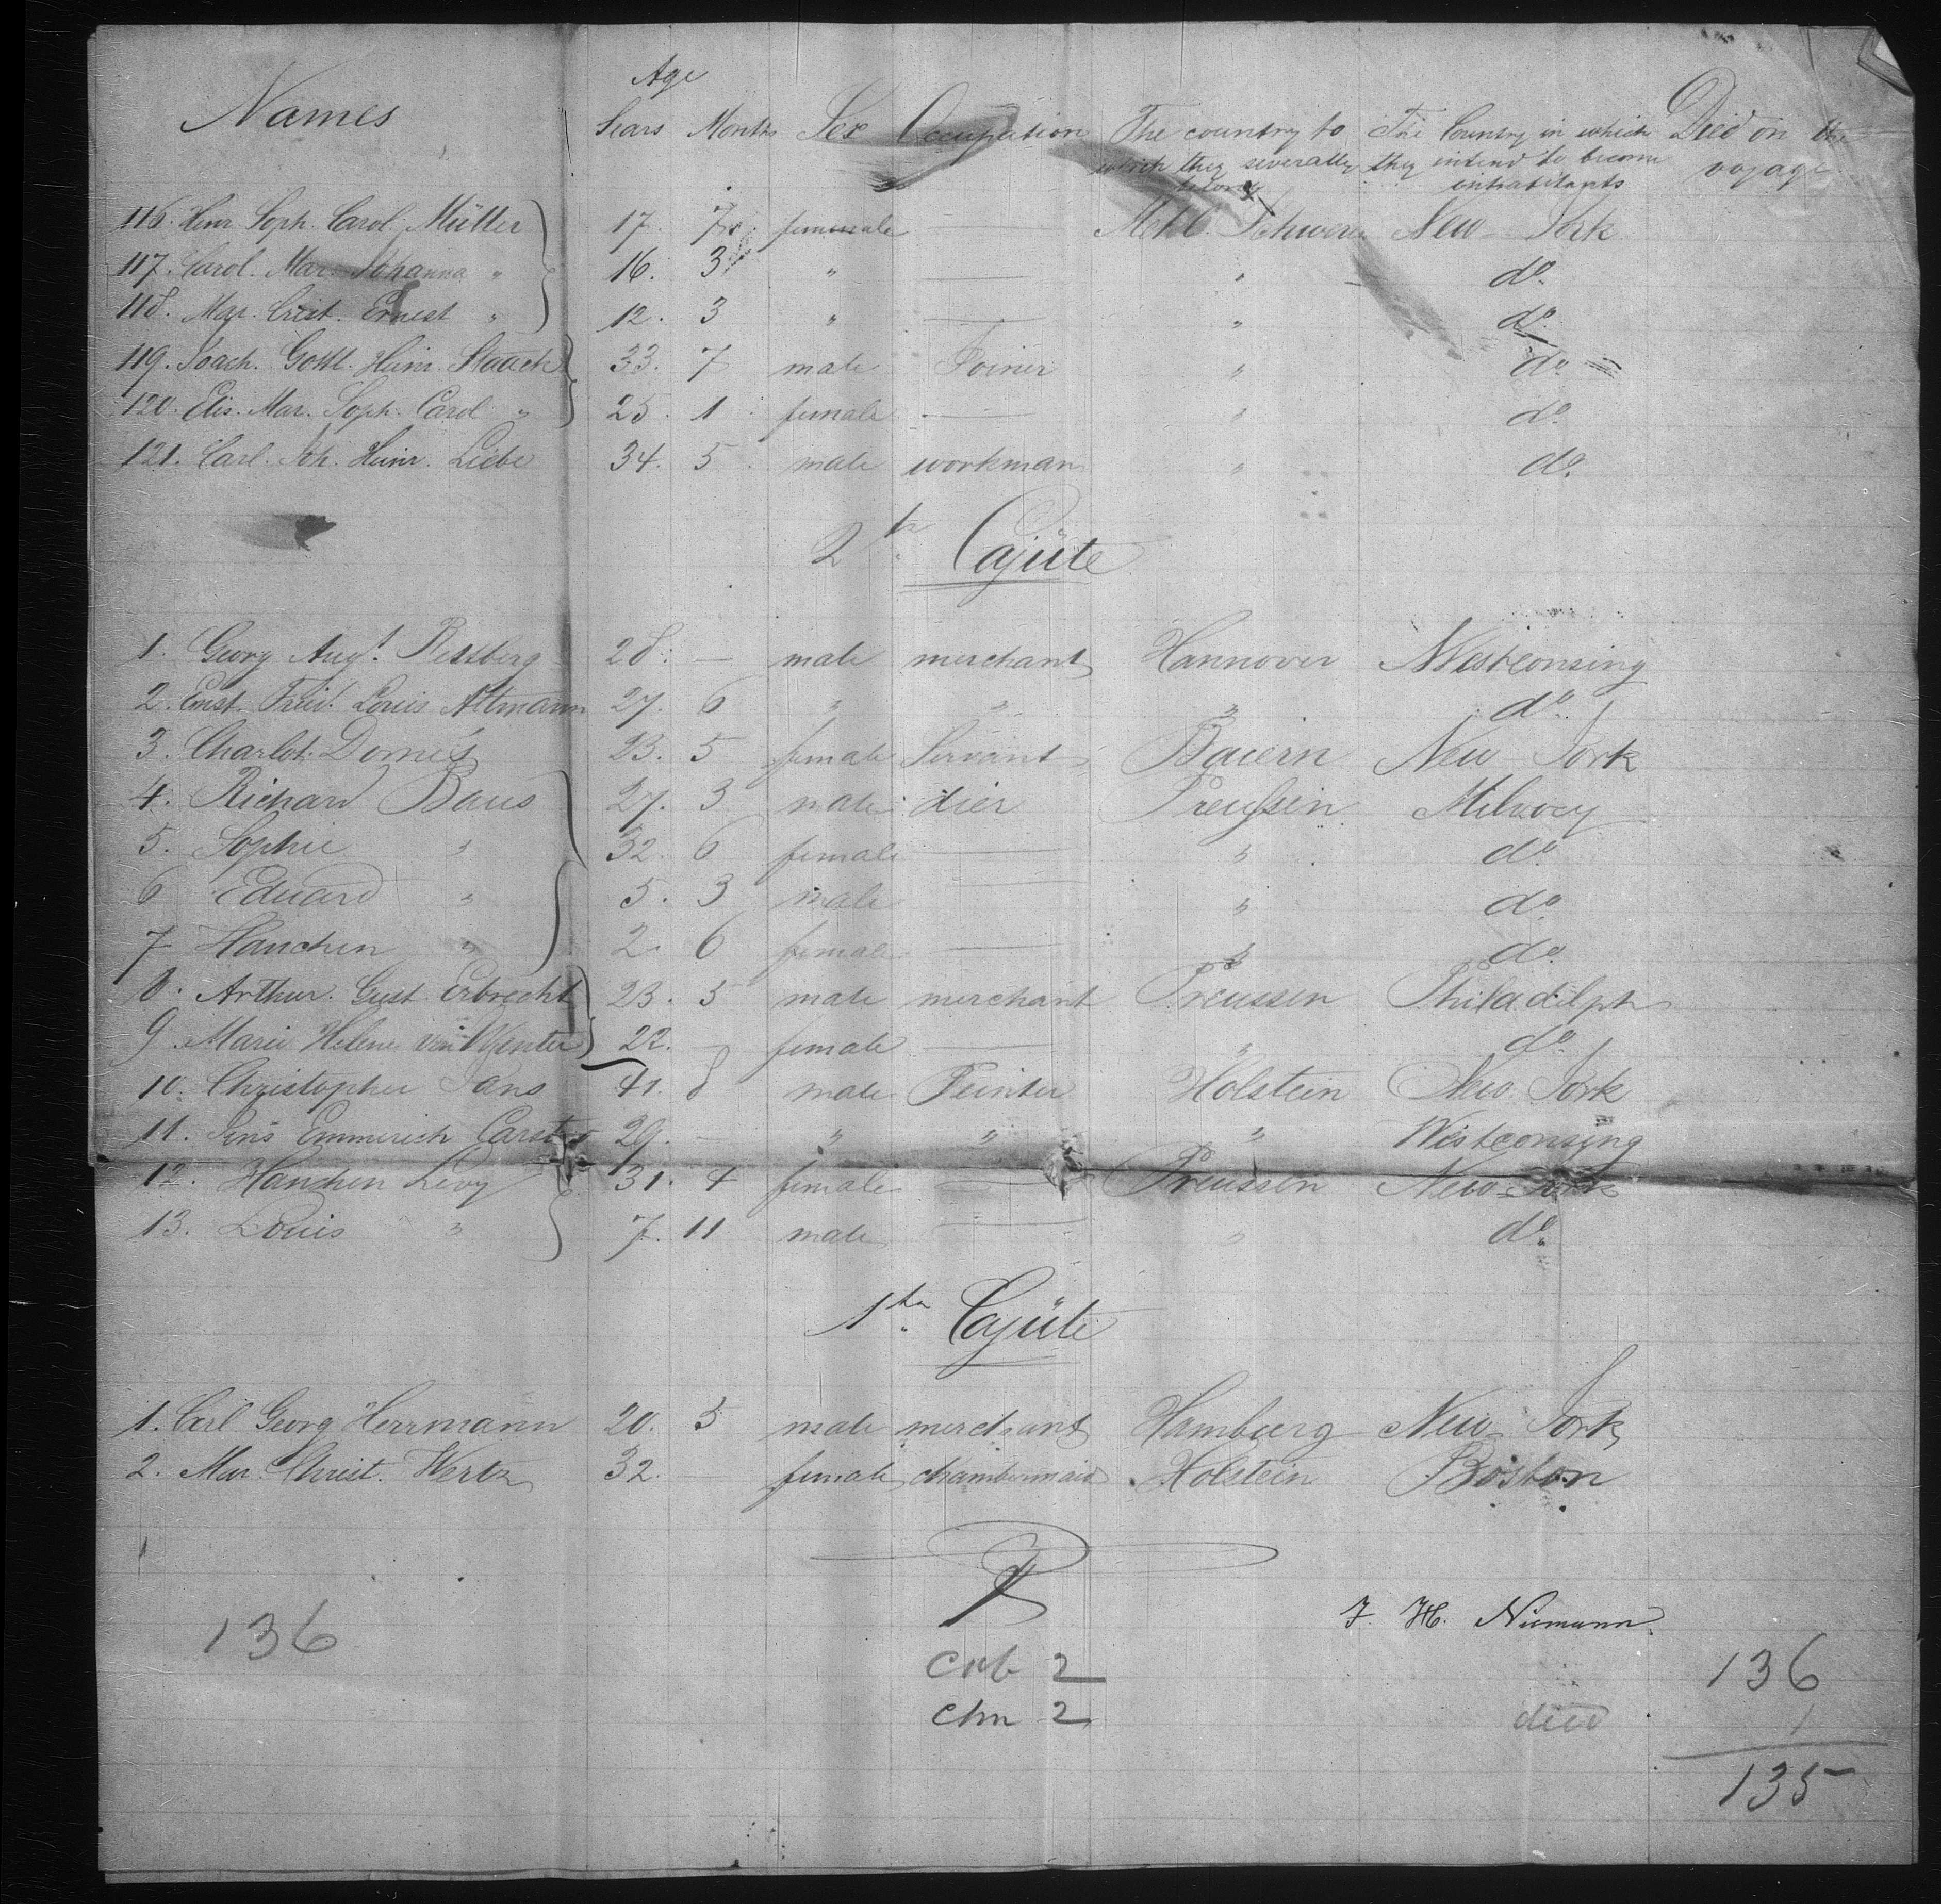 Age
Names Years Months Sex Occupation The country to The Country in which Died on the
which they severally they intend to become voyage
belong inhabitants
116. Heinr. Soph. Carol. Müller 17. 7. female — Mekl. Schwerin New York
117. Carol. Mar. Johanna " 16. 3 " — " do.
118. Mar. Crist. Ernest " 12. 3 " — " do.
119. Joach. Gottl. Heinr. Staack 33. 7 male Joiner " do.
120. Elis. Mar. Soph. Carol " 25. 1 female — " do.
121. Carl. Joh. Heinr. Liebe 34. 5 male workman " do.
2te Cajüte
1. Georg Augt. Bestberg 28. — male merchant Hannover Westconsing
2. Ernst. Fried. Louis Altmann 27. 6 " " " do.
3. Charlot. Domes 23. 5 female Servant Baiern New York
4. Richard Baus 27. 3 male dier Preussen Milwocy
5. Sophie " 32. 6 female — " do.
6 Eduard " 5. 3 male — " do.
7 Hanchen " 2. 6 female — " do.
8. Arthur. Gust. Erbrecht 23. 5 male merchant Preussen Philadelph
9. Marie Helene 22. — female — " do.
10. Christopher Jans 41. 8 male Peinter Holstein New York
11. Jens Emmerich 29. — " " " Westconsing
12. Hanchen Levy 31. 4 female — Preussen New York
13. Louis " 7. 11 male — " do.
1te Cajüte
1. Carl Georg Herrmann 20. 5 male merchant Hamburg New York
2. Mar. Christ. Wertz 32. — female chambermaid Holstein Boston
F. H. Niemann.
136
2 136
2 died 1
135